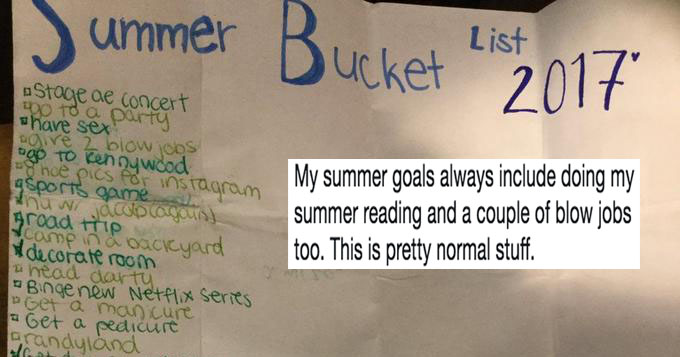 Summer Bucket List
2017
Stage ae concert
go to a party
have sex
give 2 blow jobs
go to kennywood
8 hoe pics for instagram
sports game
hu w/ jacob(again)
road trip
camp in a backyard
decorate room
head darty
Binge new Netflix series
Get a manicure
Get a pedicure
grandyland
My summer goals always include doing my
summer reading and a couple of blow jobs
too. This is pretty normal stuff.